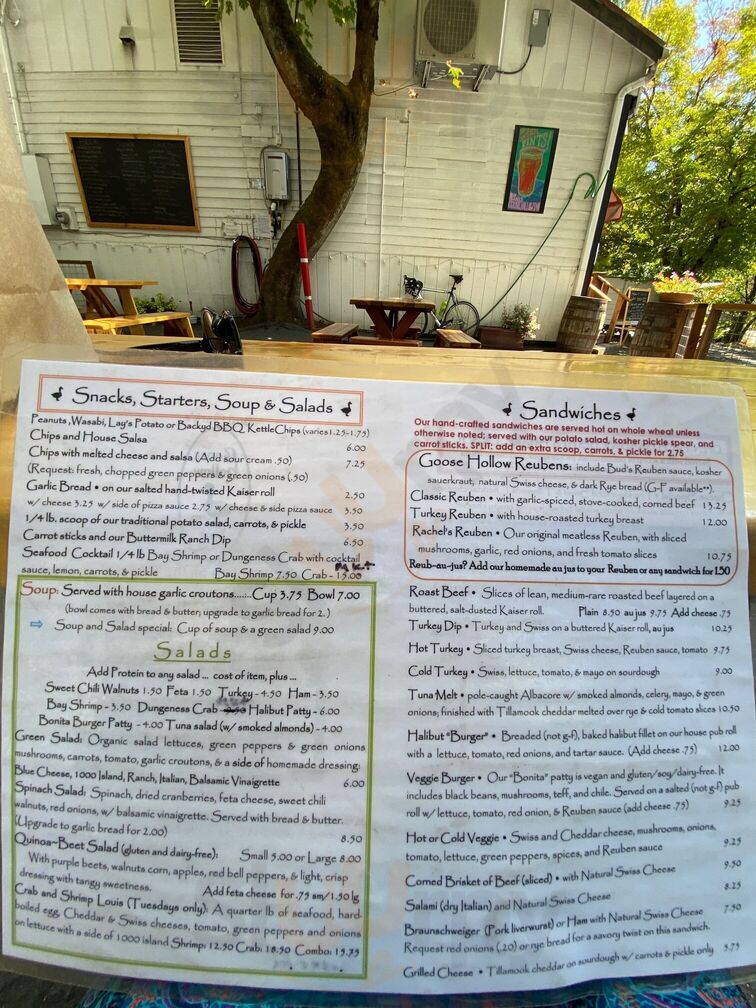 PINTS!
Snacks, Starters, Soup & Salads
Peanuts, Wasabi, Lay's Potato or Backyd BBQ, Kettle Chips (varies 1.25-1.75)
Chips and House Salsa 6.00
Chips with melted cheese and salsa (Add sour cream .50) 7.25
(Request: fresh, chopped green peppers & green onions (.50)
Garlic Bread • on our salted hand-twisted Kaiser roll 2.50
w/ cheese 3.25 w/ side of pizza sauce 2.75 w/ cheese & side pizza sauce 3.50
1/4 lb. scoop of our traditional potato salad, carrots, & pickle 3.50
Carrot sticks and our Buttermilk Ranch Dip 6.50
Seafood Cocktail 1/4 lb Bay Shrimp or Dungeness Crab with cocktail
sauce, lemon, carrots, & pickle Bay Shrimp 7.50 Crab - 15.00 MKT
Soup: Served with house garlic croutons.......Cup 3.75 Bowl 7.00
(bowl comes with bread & butter; upgrade to garlic bread for 2.)
⇨ Soup and Salad special: Cup of soup & a green salad 9.00
Salads
Add Protein to any salad ... cost of item, plus ...
Sweet Chili Walnuts 1.50 Feta 1.50 Turkey - 4.50 Ham - 3.50
Bay Shrimp - 3.50 Dungeness Crab Halibut Patty - 6.00
Bonita Burger Patty - 4.00 Tuna salad (w/ smoked almonds) - 4.00
Green Salad: Organic salad lettuces, green peppers & green onions
mushrooms, carrots, tomato, garlic croutons, & a side of homemade dressing:
Blue Cheese, 1000 Island, Ranch, Italian, Balsamic Vinaigrette 6.00
Spinach Salad: Spinach, dried cranberries, feta cheese, sweet chili
walnuts, red onions, w/ balsamic vinaigrette. Served with bread & butter.
(Upgrade to garlic bread for 2.00) 8.50
Quinoa-Beet Salad (gluten and dairy-free): Small 5.00 or Large 8.00
With purple beets, walnuts corn, apples, red bell peppers, & light, crisp
dressing with tangy sweetness. Add feta cheese for .75 sm/1.50 lg
Crab and Shrimp Louis (Tuesdays only): A quarter lb of seafood, hard-
boiled egg, Cheddar & Swiss cheeses, tomato, green peppers and onions
on lettuce with a side of 1000 island Shrimp: 12.50 Crab: 18.50 Combo: 15.75
Sandwiches
Our hand-crafted sandwiches are served hot on whole wheat unless
otherwise noted; served with our potato salad, kosher pickle spear, and
carrot sticks. SPLIT: add an extra scoop, carrots, & pickle for 2.75
Goose Hollow Reubens: include Bud's Reuben sauce, kosher
sauerkraut, natural Swiss cheese, & dark Rye bread (G-F available**).
Classic Reuben • with garlic-spiced, stove-cooked, corned beef 13.25
Turkey Reuben • with house-roasted turkey breast 12.00
Rachel's Reuben • Our original meatless Reuben, with sliced
mushrooms, garlic, red onions, and fresh tomato slices 10.75
Reub-au-jus? Add our homemade au jus to your Reuben or any sandwich for 1.50
Roast Beef • Slices of lean, medium-rare roasted beef layered on a
buttered, salt-dusted Kaiser roll. Plain 8.50 au jus 9.75 Add cheese .75
Turkey Dip • Turkey and Swiss on a buttered Kaiser roll, au jus 10.25
Hot Turkey • Sliced turkey breast, Swiss cheese, Reuben sauce, tomato 9.75
Cold Turkey • Swiss, lettuce, tomato, & mayo on sourdough 9.00
Tuna Melt • pole-caught Albacore w/ smoked almonds, celery, mayo, & green
onions; finished with Tillamook cheddar melted over rye & cold tomato slices 10.50
Halibut "Burger" • Breaded (not g-f), baked halibut fillet on our house pub roll
with a lettuce, tomato, red onions, and tartar sauce. (Add cheese .75) 12.00
Veggie Burger • Our "Bonita" patty is vegan and gluten/soy/dairy-free. It
includes black beans, mushrooms, teff, and chile. Served on a salted (not g-f) pub
roll w/ lettuce, tomato, red onion, & Reuben sauce (add cheese .75) 9.25
Hot or Cold Veggie • Swiss and Cheddar cheese, mushrooms, onions,
tomato, lettuce, green peppers, spices, and Reuben sauce 9.25
Corned Brisket of Beef (sliced) • with Natural Swiss Cheese 9.50
Salami (dry Italian) and Natural Swiss Cheese 8.25
Braunschweiger (Pork liverwurst) or Ham with Natural Swiss Cheese 7.50
Request red onions (.20) or rye bread for a savory twist on this sandwich.
Grilled Cheese • Tillamook cheddar on sourdough w/ carrots & pickle only 5.75